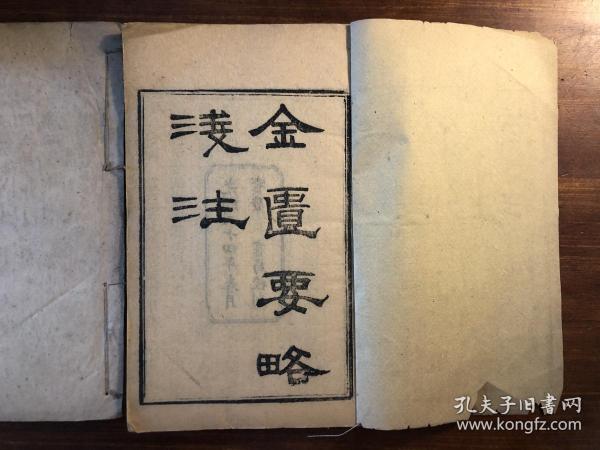 金匱要略
淺注
孔夫子旧書网
www.kongfz.com